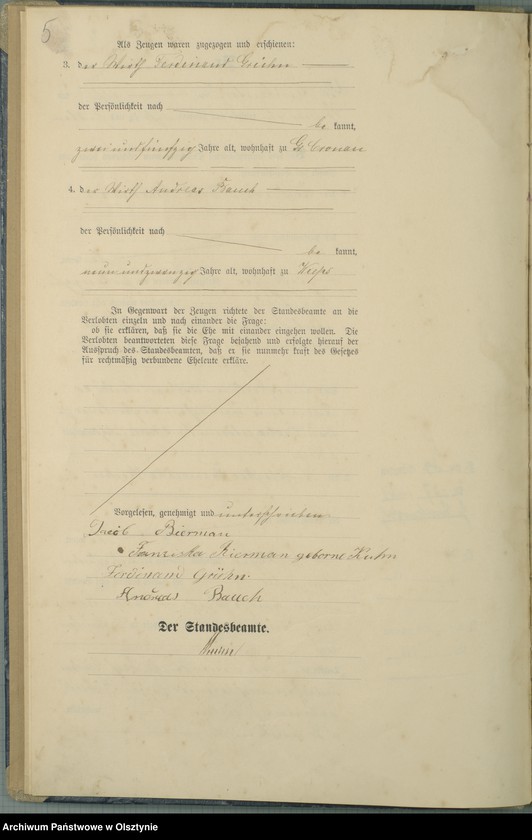 5
Als Zeugen waren zugezogen und erschienen:
3. der Wirth Ferdinand Gröhn
der Persönlichkeit nach
be kannt,
zweiundfünfzig Jahre alt, wohnhaft zu Gr. Cronau
4. der Wirth Andreas Bauch
der Persönlichkeit nach
be kannt,
neunundzwanzig Jahre alt, wohnhaft zu
In Gegenwart der Zeugen richtete der Standesbeamte an die
Verlobten einzeln und nach einander die Frage:
ob sie erklären, daß sie die Ehe mit einander eingehen wollen. Die
Verlobten beantworteten diese Frage bejahend und erfolgte hierauf der
Ausspruch des Standesbeamten, daß er sie nunmehr kraft des Gesetzes
für rechtmäßig verbundene Eheleute erkläre.
Vorgelesen, genehmigt und unterschrieben
Jacob Bierman
Franziska Bierman geborne Kuhn
Ferdinand Gröhn.
Andreas Bauch
Der Standesbeamte.
Archiwum Państwowe w Olsztynie